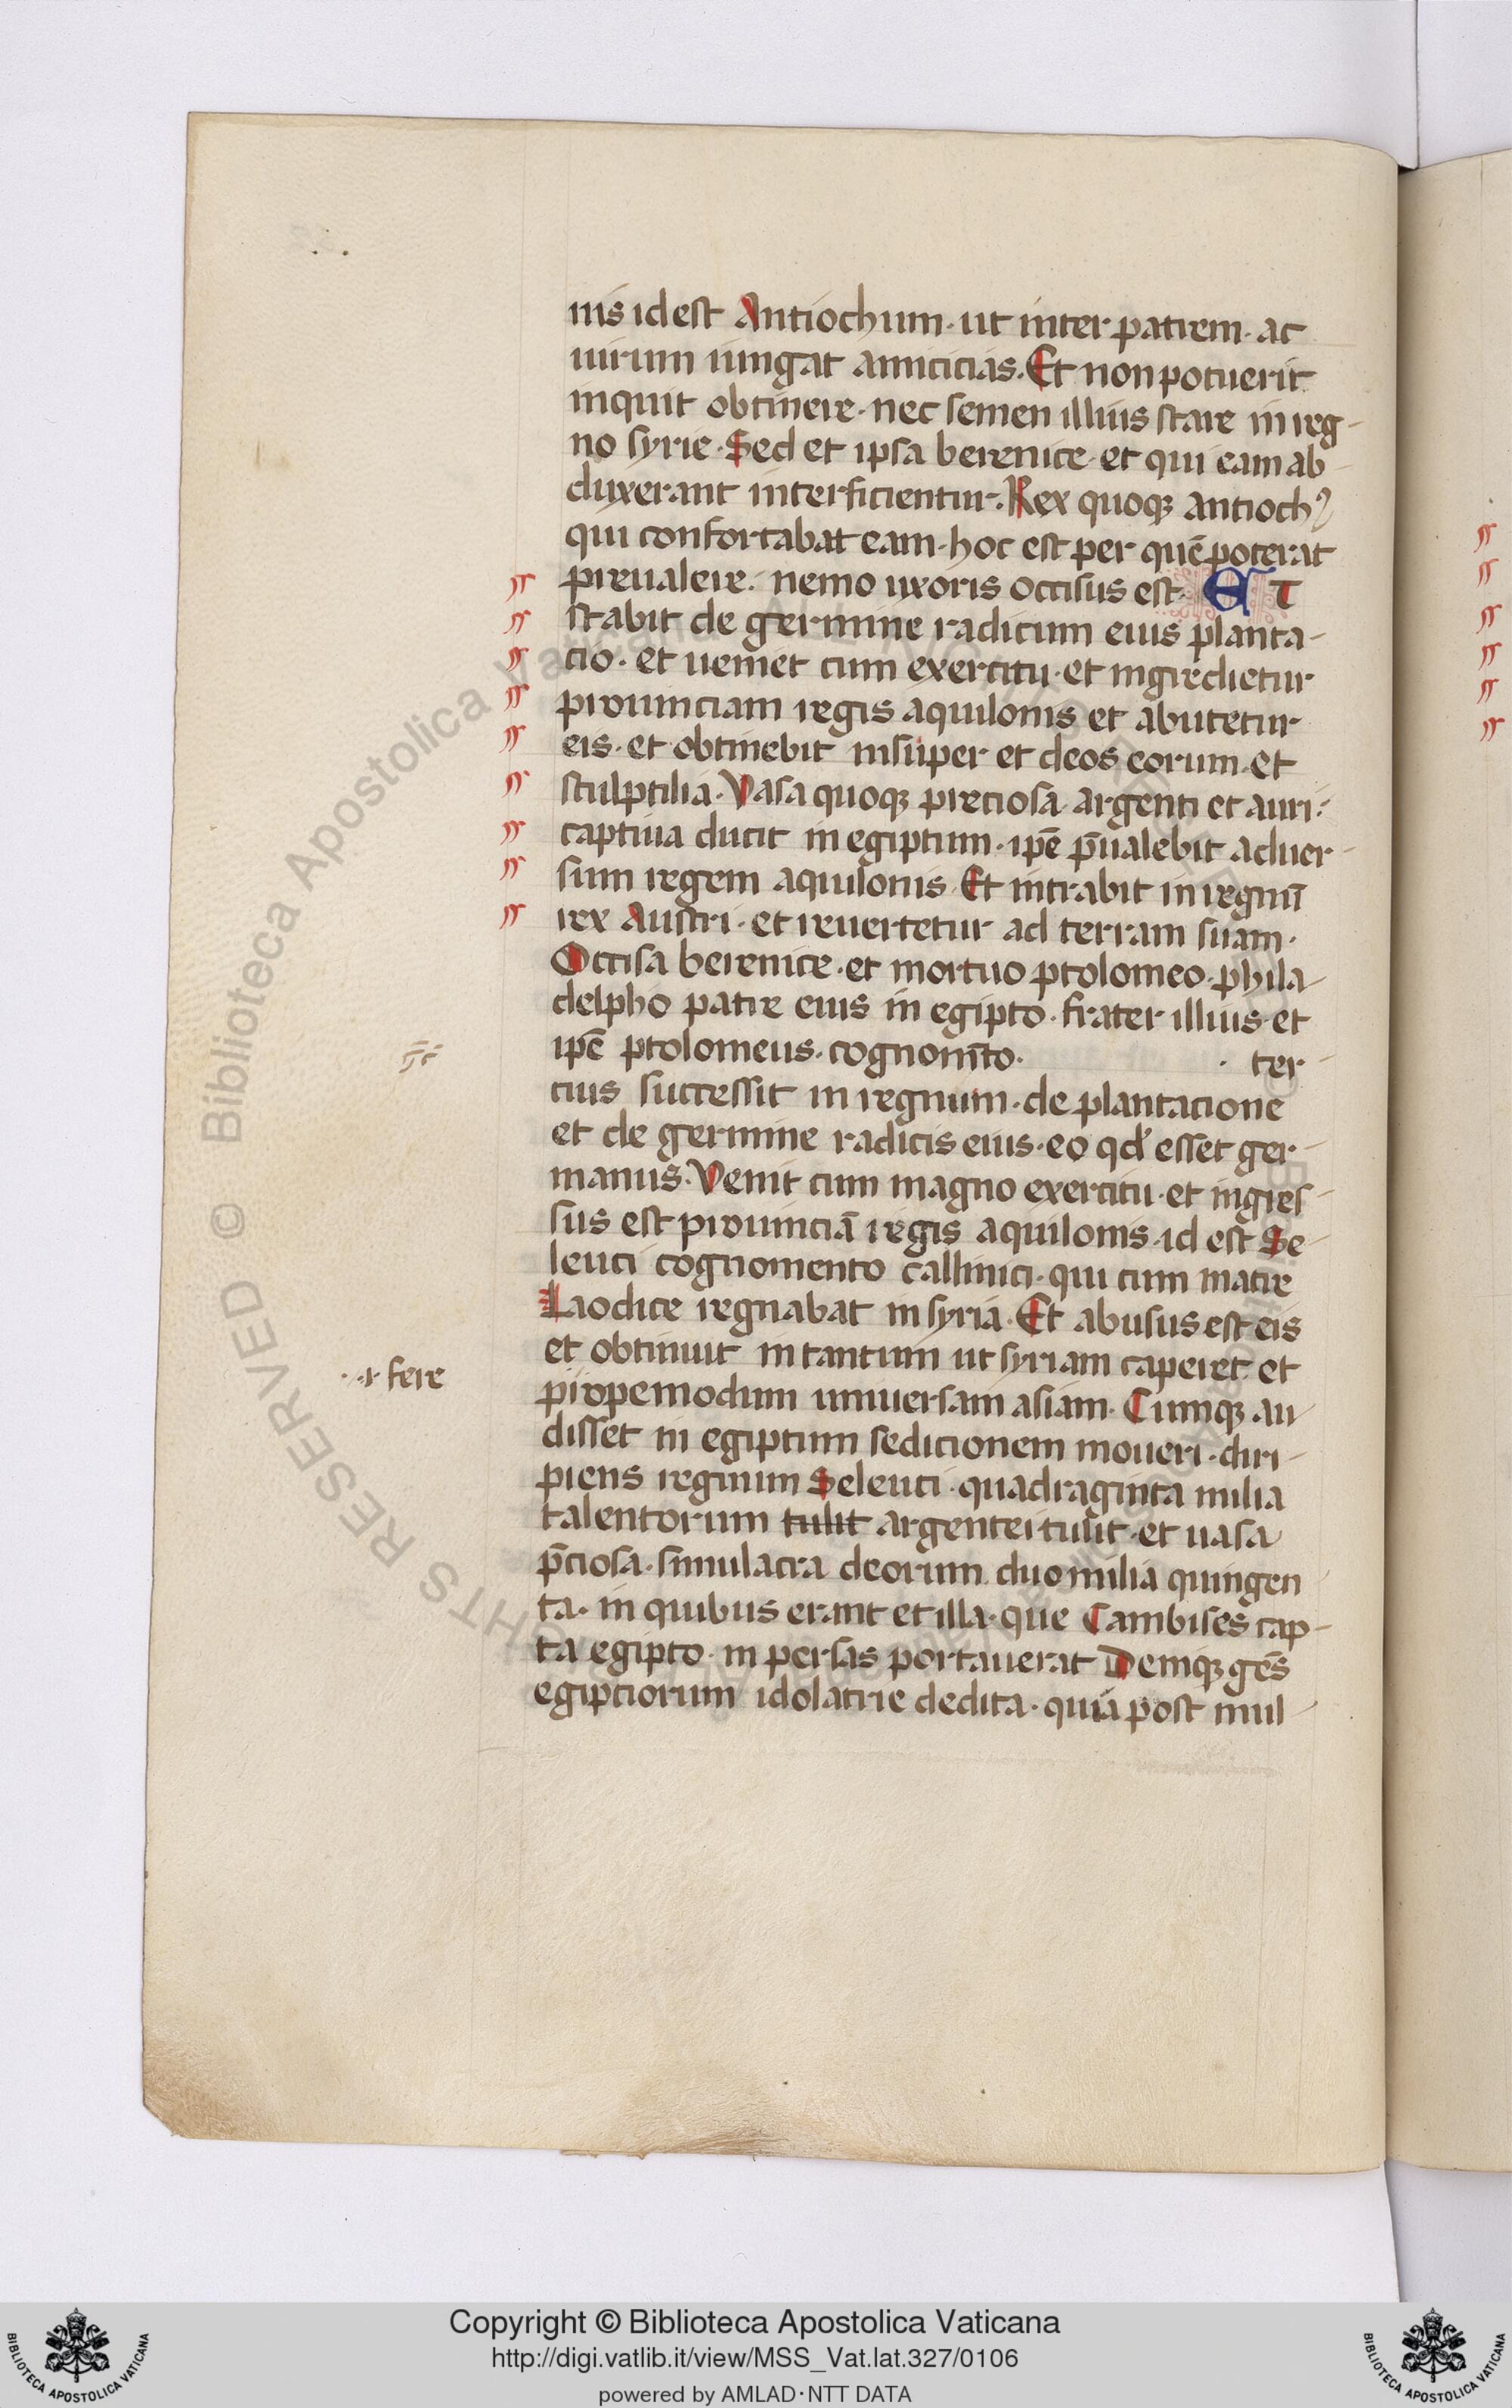 nis id est Antiochum · ut inter patrem · ac
uirum iungat amicicias · Et non potuerit
inquit obtinere · nec semen illius stare in reg-
no syrie · Sed et ipsa berenice · et qui eam ab-
duxerant interficientur · Rex quoqꝫ antiochꝰ
qui confortabat eam · hoc est per quē poterat
preualere · nemo uxoris occisus est · ET
stabit de germine radicum eius planta-
cio · et ueniet cum exercitu · et ingredietur
prouinciam regis aquilonis et abutetur
eis · et obtinebit insuper et deos eorum · et
sculptilia · Vasa quoqꝫ preciosa argenti et auri ·
captiua ducit in egiptum · ip̄e p̄ualebit aduer-
sum regem aquilonis · Et intrabit in regnū
rex Austri · et reuertetur ad terram suam ·
Occisa berenice · et mortuo ptolomeo · phila-
delpho patre eius in egipto · frater illius · et
ip̄e ptolomeus · cognom̄to · · ter-
cius successit in regnum · de plantacione
et de germine radicis eius · eo qd' esset ger-
manus · Venit cum magno exercitu · et ingres-
sus est prouinciā regis aquilonis · id est Se-
leuci cognomento callinici · qui cum matre
Laodice regnabat in syria · Et abusus est eis
et obtinuit in tantum ut syriam caperet · et
· r fere
propemodum uniuersam asiam · Cumqꝫ au-
disset in egiptum sedicionem moueri · diri-
piens regnum Seleuci · quadraginta milia
talentorum tulit argentei tulit · et uasa
p̄ciosa · simulacra deorum duo milia quingen-
ta · in quibus erant et illa · que Cambises cap-
ta egipto · in persas portauerat Deniqꝫ gēs
egiptiorum idolatrie dedita · quia post mul-
© Biblioteca Apostolica Vaticana
RIGHTS RESERVED
Copyright © Biblioteca Apostolica Vaticana
http://digi.vatlib.it/view/MSS_Vat.lat.327/0106
powered by AMLAD·NTT DATA
BIBLIOTECA APOSTOLICA VATICANA
BIBLIOTECA APOSTOLICA VATICANA